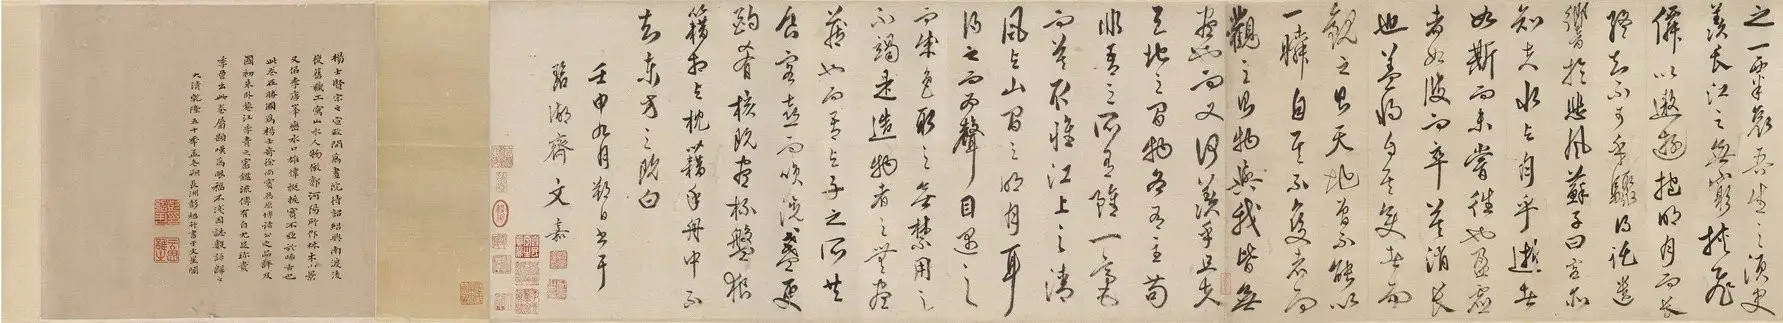 之一粟哀吾生之須臾
羨長江之無窮挾飛
僊以遨遊抱明月而長
終知不可乎驟得託遺
響於悲風蘇子曰客亦
知夫水與月乎逝者
如斯而未嘗往也盈虛
者如彼而卒莫消長
也蓋將自其變者而
觀之則天地曾不能以
一瞬自其不變者而
觀之則物與我皆無
盡也而又何羨乎且夫
天地之間物各有主苟
非吾之所有雖一毫
而莫取惟江上之清
風與山間之明月耳
得之而為聲目遇之
而成色取之無禁用之
不竭是造物者之無盡
藏也而吾與子之所共
食客喜而笑洗盞更
酌肴核既盡杯盤狼
籍相與枕藉乎舟中不
知東方之既白
壬申九月朔日書于
文嘉
楊士賢宋之宣政間為畫院待詔紹興南渡後
復舊職工寫山水人物郭河陽所作林木小景
又似李唐峯巒水口雄偉挺實不亞於晞古也
此卷在勝國為楊士奇
國初
大清乾隆五十年孟冬朔長洲彭紹升書于文星閣